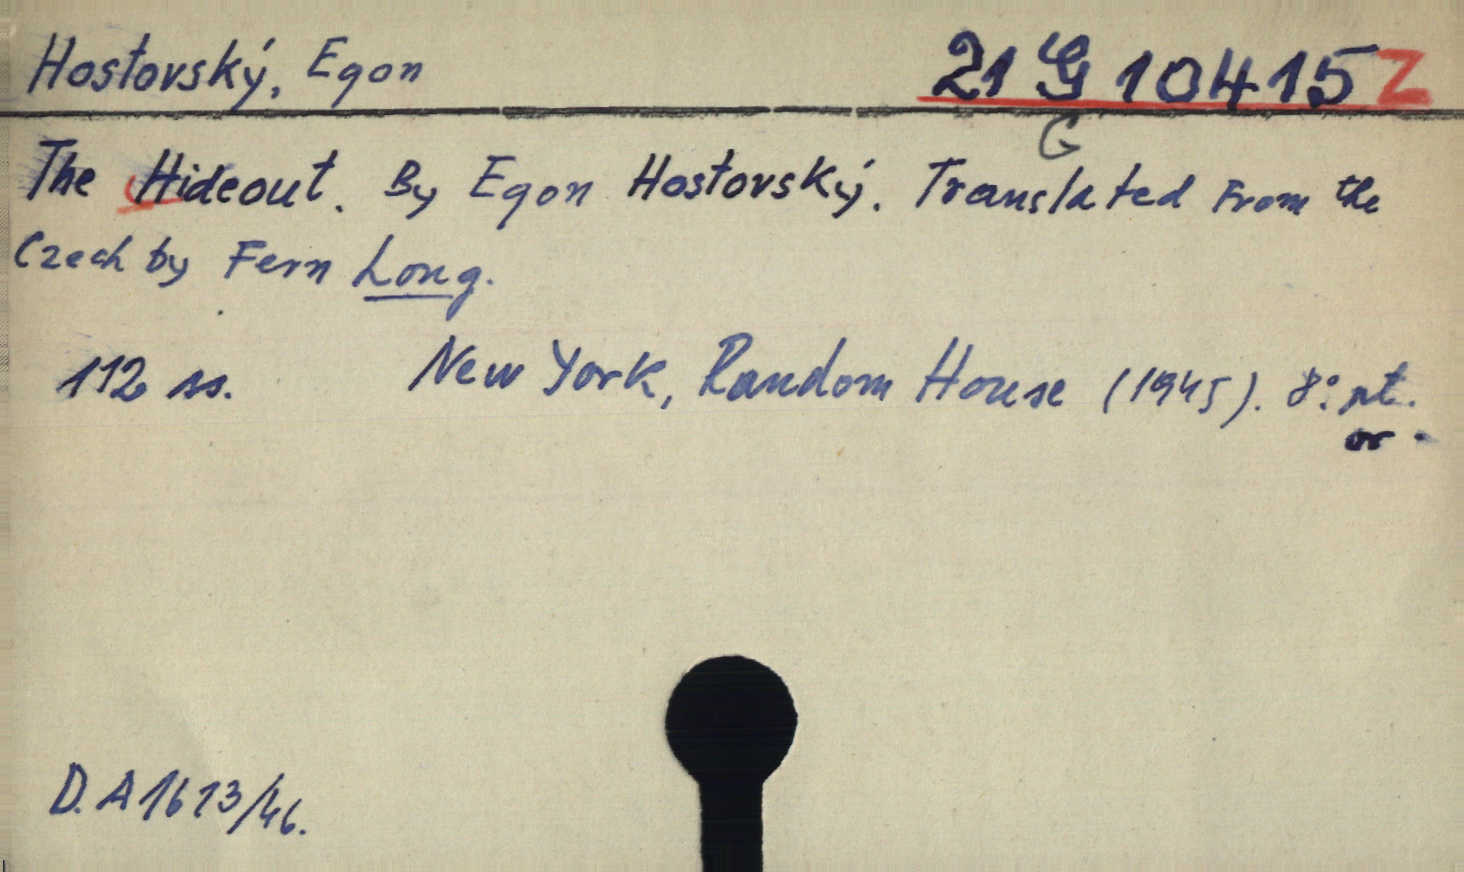 Hostovský, Egon
21 G 10415 Z
G
The Hideout. By Egon Hostovský. Translated From the
Czech by Fern Long.
112 ss. New York, Random House (1945). 8°. pt.
or.
D. A 1613/46.